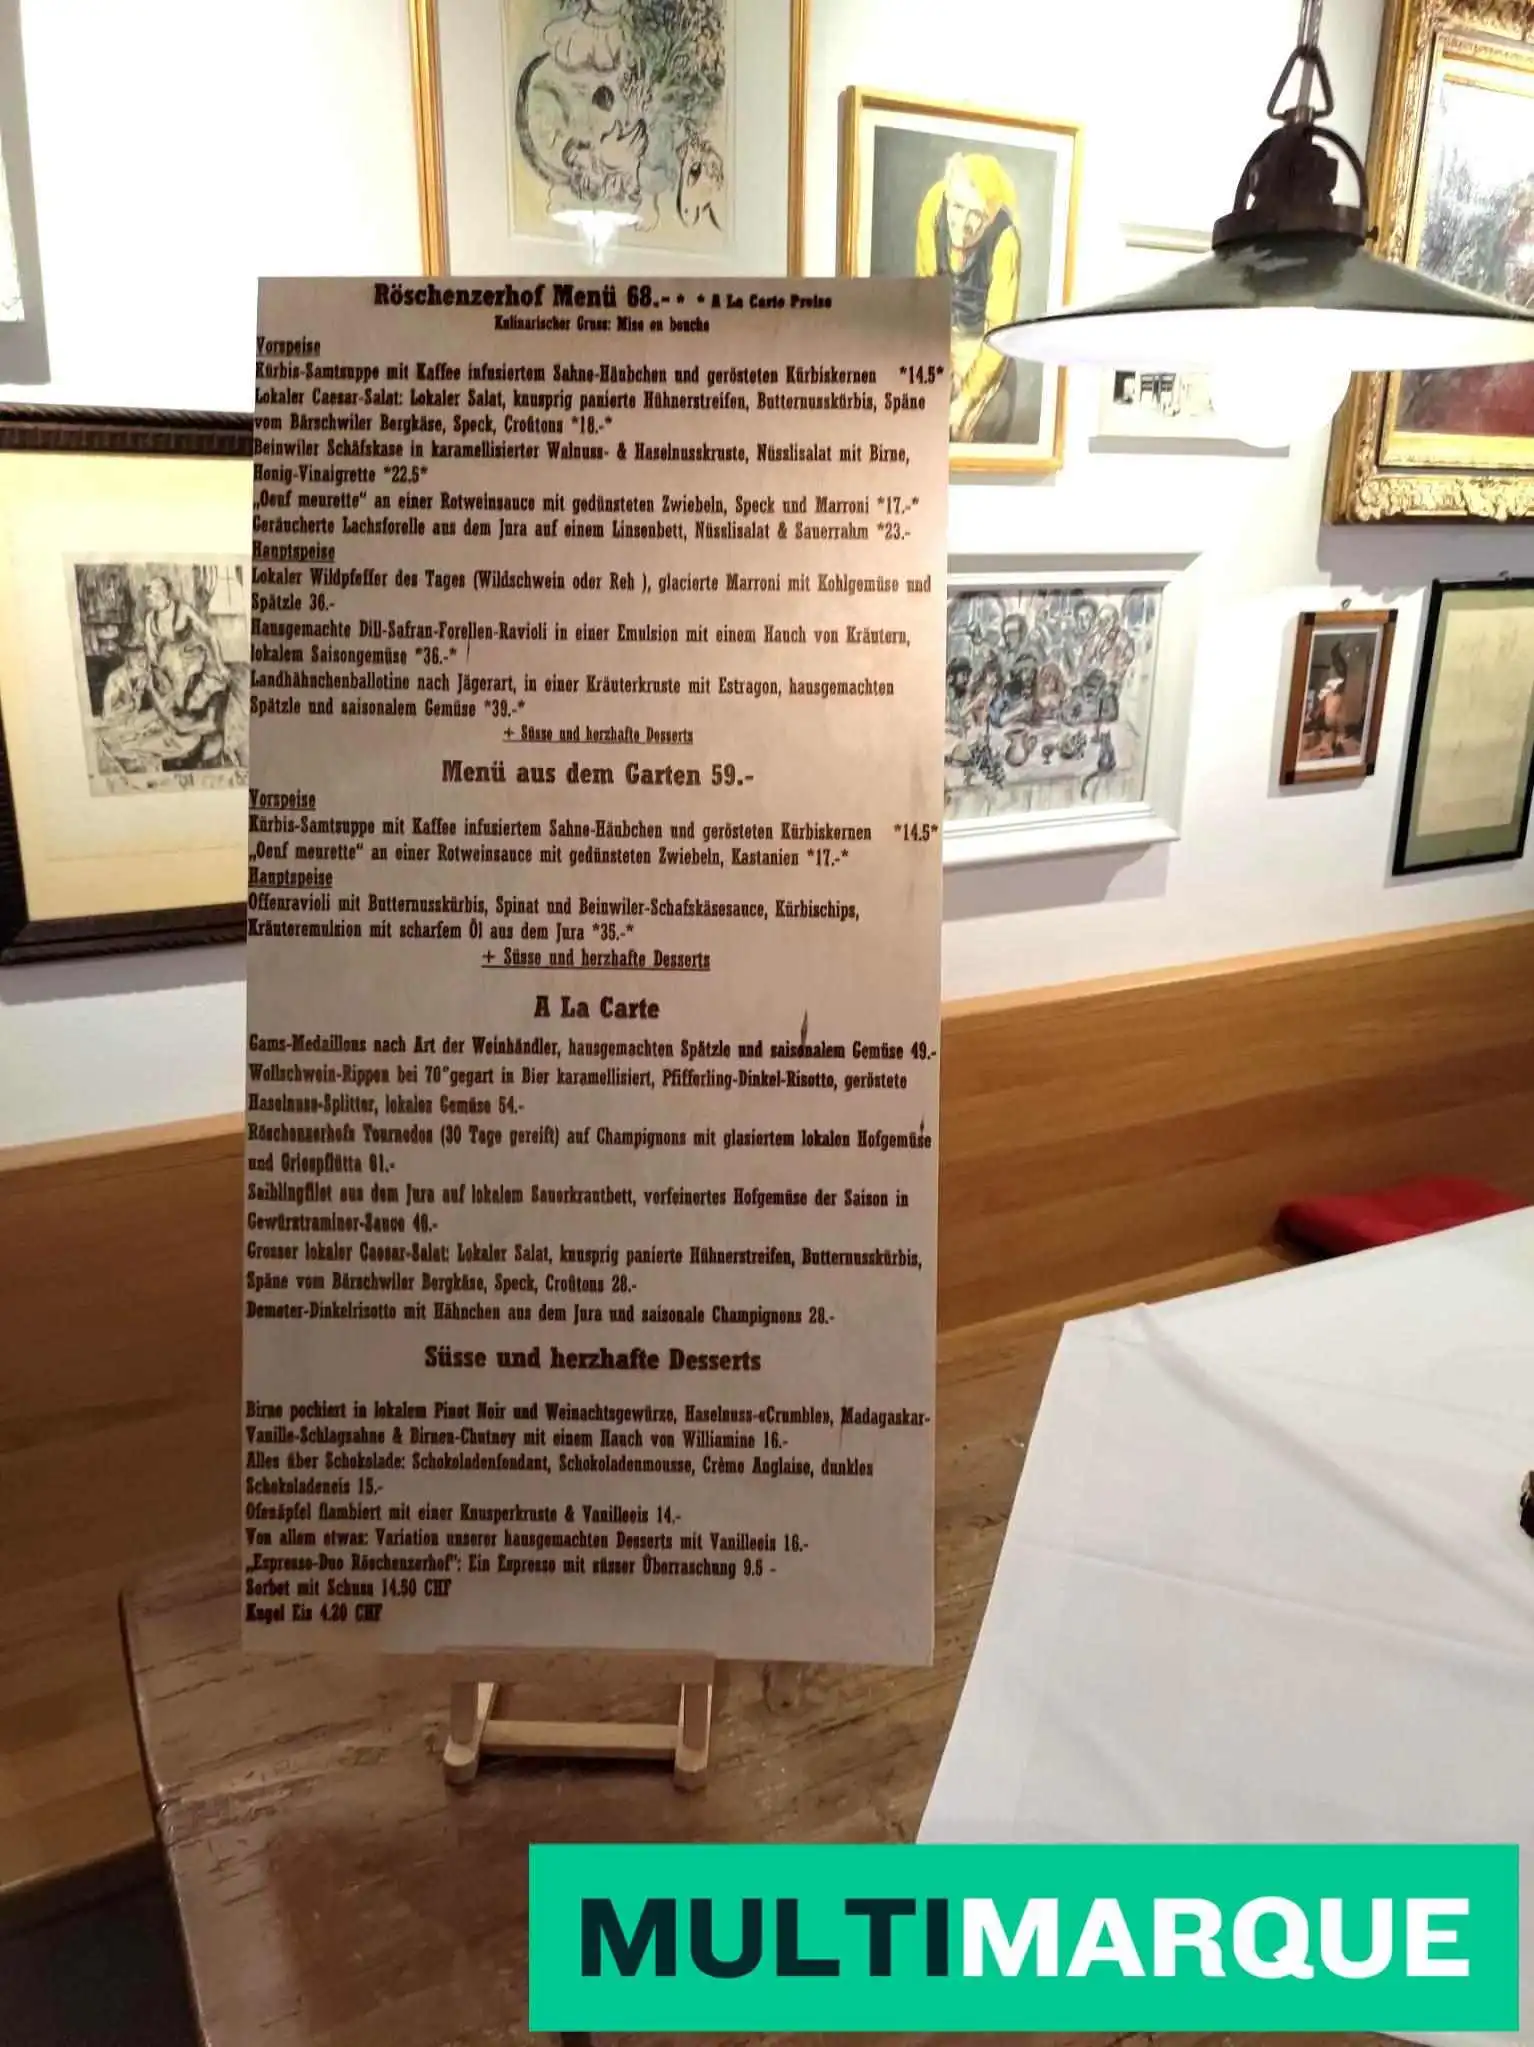 Röschenzerhof Menü 68.- * * A La Carte Preise
Kulinarischer Gruss: Mise en bouche
Vorspeise
Kürbis-Samtsuppe mit Kaffee infusiertem Sahne-Häubchen und gerösteten Kürbiskernen *14.5*
Lokaler Caesar-Salat: Lokaler Salat, knusprig panierte Hühnerstreifen, Butternusskürbis, Späne
vom Bärschwiler Bergkäse, Speck, Croûtons *18.-*
Beinwiler Schäfskase in karamellisierter Walnuss- & Haselnusskruste, Nüsslisalat mit Birne,
Honig-Vinaigrette *22.5*
„Oeuf meurette“ an einer Rotweinsauce mit gedünsteten Zwiebeln, Speck und Marroni *17.-*
Geräucherte Lachsforelle aus dem Jura auf einem Linsenbett, Nüsslisalat & Sauerrahm *23.-
Hauptspeise
Lokaler Wildpfeffer des Tages (Wildschwein oder Reh ), glacierte Marroni mit Kohlgemüse und
Spätzle 36.-
Hausgemachte Dill-Safran-Forellen-Ravioli in einer Emulsion mit einem Hauch von Kräutern,
lokalem Saisongemüse *36.-*
Landhähnchenballotine nach Jägerart, in einer Kräuterkruste mit Estragon, hausgemachten
Spätzle und saisonalem Gemüse *39.-*
+ Süsse und herzhafte Desserts
Menü aus dem Garten 59.-
Vorspeise
Kürbis-Samtsuppe mit Kaffee infusiertem Sahne-Häubchen und gerösteten Kürbiskernen *14.5*
„Oeuf meurette“ an einer Rotweinsauce mit gedünsteten Zwiebeln, Kastanien *17.-*
Hauptspeise
Offenravioli mit Butternusskürbis, Spinat und Beinwiler-Schafskäsesauce, Kürbischips,
Kräuteremulsion mit scharfem Öl aus dem Jura *35.-*
+ Süsse und herzhafte Desserts
A La Carte
Gams-Medaillons nach Art der Weinhändler, hausgemachten Spätzle und saisonalem Gemüse 49.-
Wollschwein-Rippen bei 70°gegart in Bier karamellisiert, Pfifferling-Dinkel-Risotto, geröstete
Haselnuss-Splitter, lokales Gemüse 54.-
Röschenzerhofs Tournedos (30 Tage gereift) auf Champignons mit glasiertem lokalen Hofgemüse
und Griespflütta 61.-
Saiblingfilet aus dem Jura auf lokalem Sauerkrautbett, verfeinertes Hofgemüse der Saison in
Gewürztraminer-Sauce 46.-
Grosser lokaler Caesar-Salat: Lokaler Salat, knusprig panierte Hühnerstreifen, Butternusskürbis,
Späne vom Bärschwiler Bergkäse, Speck, Croûtons 28.-
Demeter-Dinkelrisotto mit Hähnchen aus dem Jura und saisonale Champignons 28.-
Süsse und herzhafte Desserts
Birne pochiert in lokalem Pinot Noir und Weinachtsgewürze, Haselnuss-«Crumble», Madagaskar-
Vanille-Schlagsahne & Birnen-Chutney mit einem Hauch von Williamine 16.-
Alles über Schokolade: Schokoladenfondant, Schokoladenmousse, Crème Anglaise, dunkles
Schokoladeneis 15.-
Ofenäpfel flambiert mit einer Knusperkruste & Vanilleeis 14.-
Von allem etwas: Variation unserer hausgemachten Desserts mit Vanilleeis 16.-
„Espresso-Duo Röschenzerhof“: Ein Espresso mit süsser Überraschung 9.5 -
Sorbet mit Schuss 14.50 CHF
Kugel Eis 4.20 CHF
MULTIMARQUE